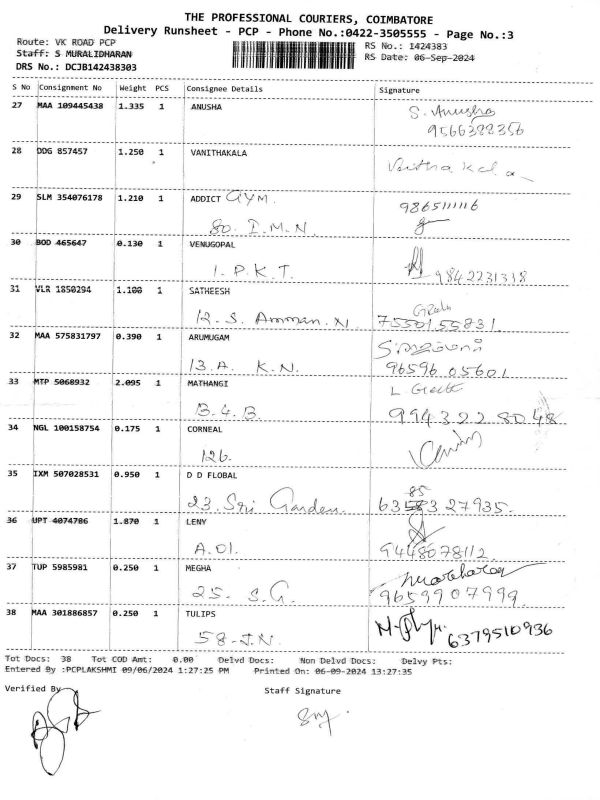 THE PROFESSIONAL COURIERS, COIMBATORE
Delivery Runsheet - PCP - Phone No.:0422-3505555 - Page No.:3
Route: VK ROAD PCP RS No.: 1424383
Staff: S MURALIDHARAN RS Date: 06-Sep-2024
DRS No.: DCJB142438303
S No Consignment No Weight PCS Consignee Details Signature
27 MAA 109445438 1.335 1 ANUSHA S. Anusha
9566322356
28 DDG 857457 1.250 1 VANITHAKALA
29 SLM 354076178 1.210 1 ADDICT GYM. 986511116
80. I.M.N.
30 BOD 465647 0.130 1 VENUGOPAL
1. P.K.T. 9842231318
31 VLR 1850294 1.100 1 SATHEESH
12. S. Amman. N. 7550155831
32 MAA 575831797 0.390 1 ARUMUGAM
13. A. K.N. 96596 05601
33 MTP 5068932 2.095 1 MATHANGI
B.4.B. 9943228048
34 NGL 100158754 0.175 1 CORNEAL
126.
35 IXM 507028531 0.950 1 D D FLOBAL 85
23. Sri Garden. 27935.
36 UPT 4074786 1.870 1 LENY
A.01. 9448078112
37 TUP 5985981 0.250 1 MEGHA
25. S.G. 9659907999
38 MAA 301886857 0.250 1 TULIPS
58-J.N. 6379510936
Tot Docs: 38 Tot COD Amt: 0.00 Delvd Docs: Non Delvd Docs: Delvy Pts:
Entered By :PCPLAKSHMI 09/06/2024 1:27:25 PM Printed On: 06-09-2024 13:27:35
Verified By Staff Signature